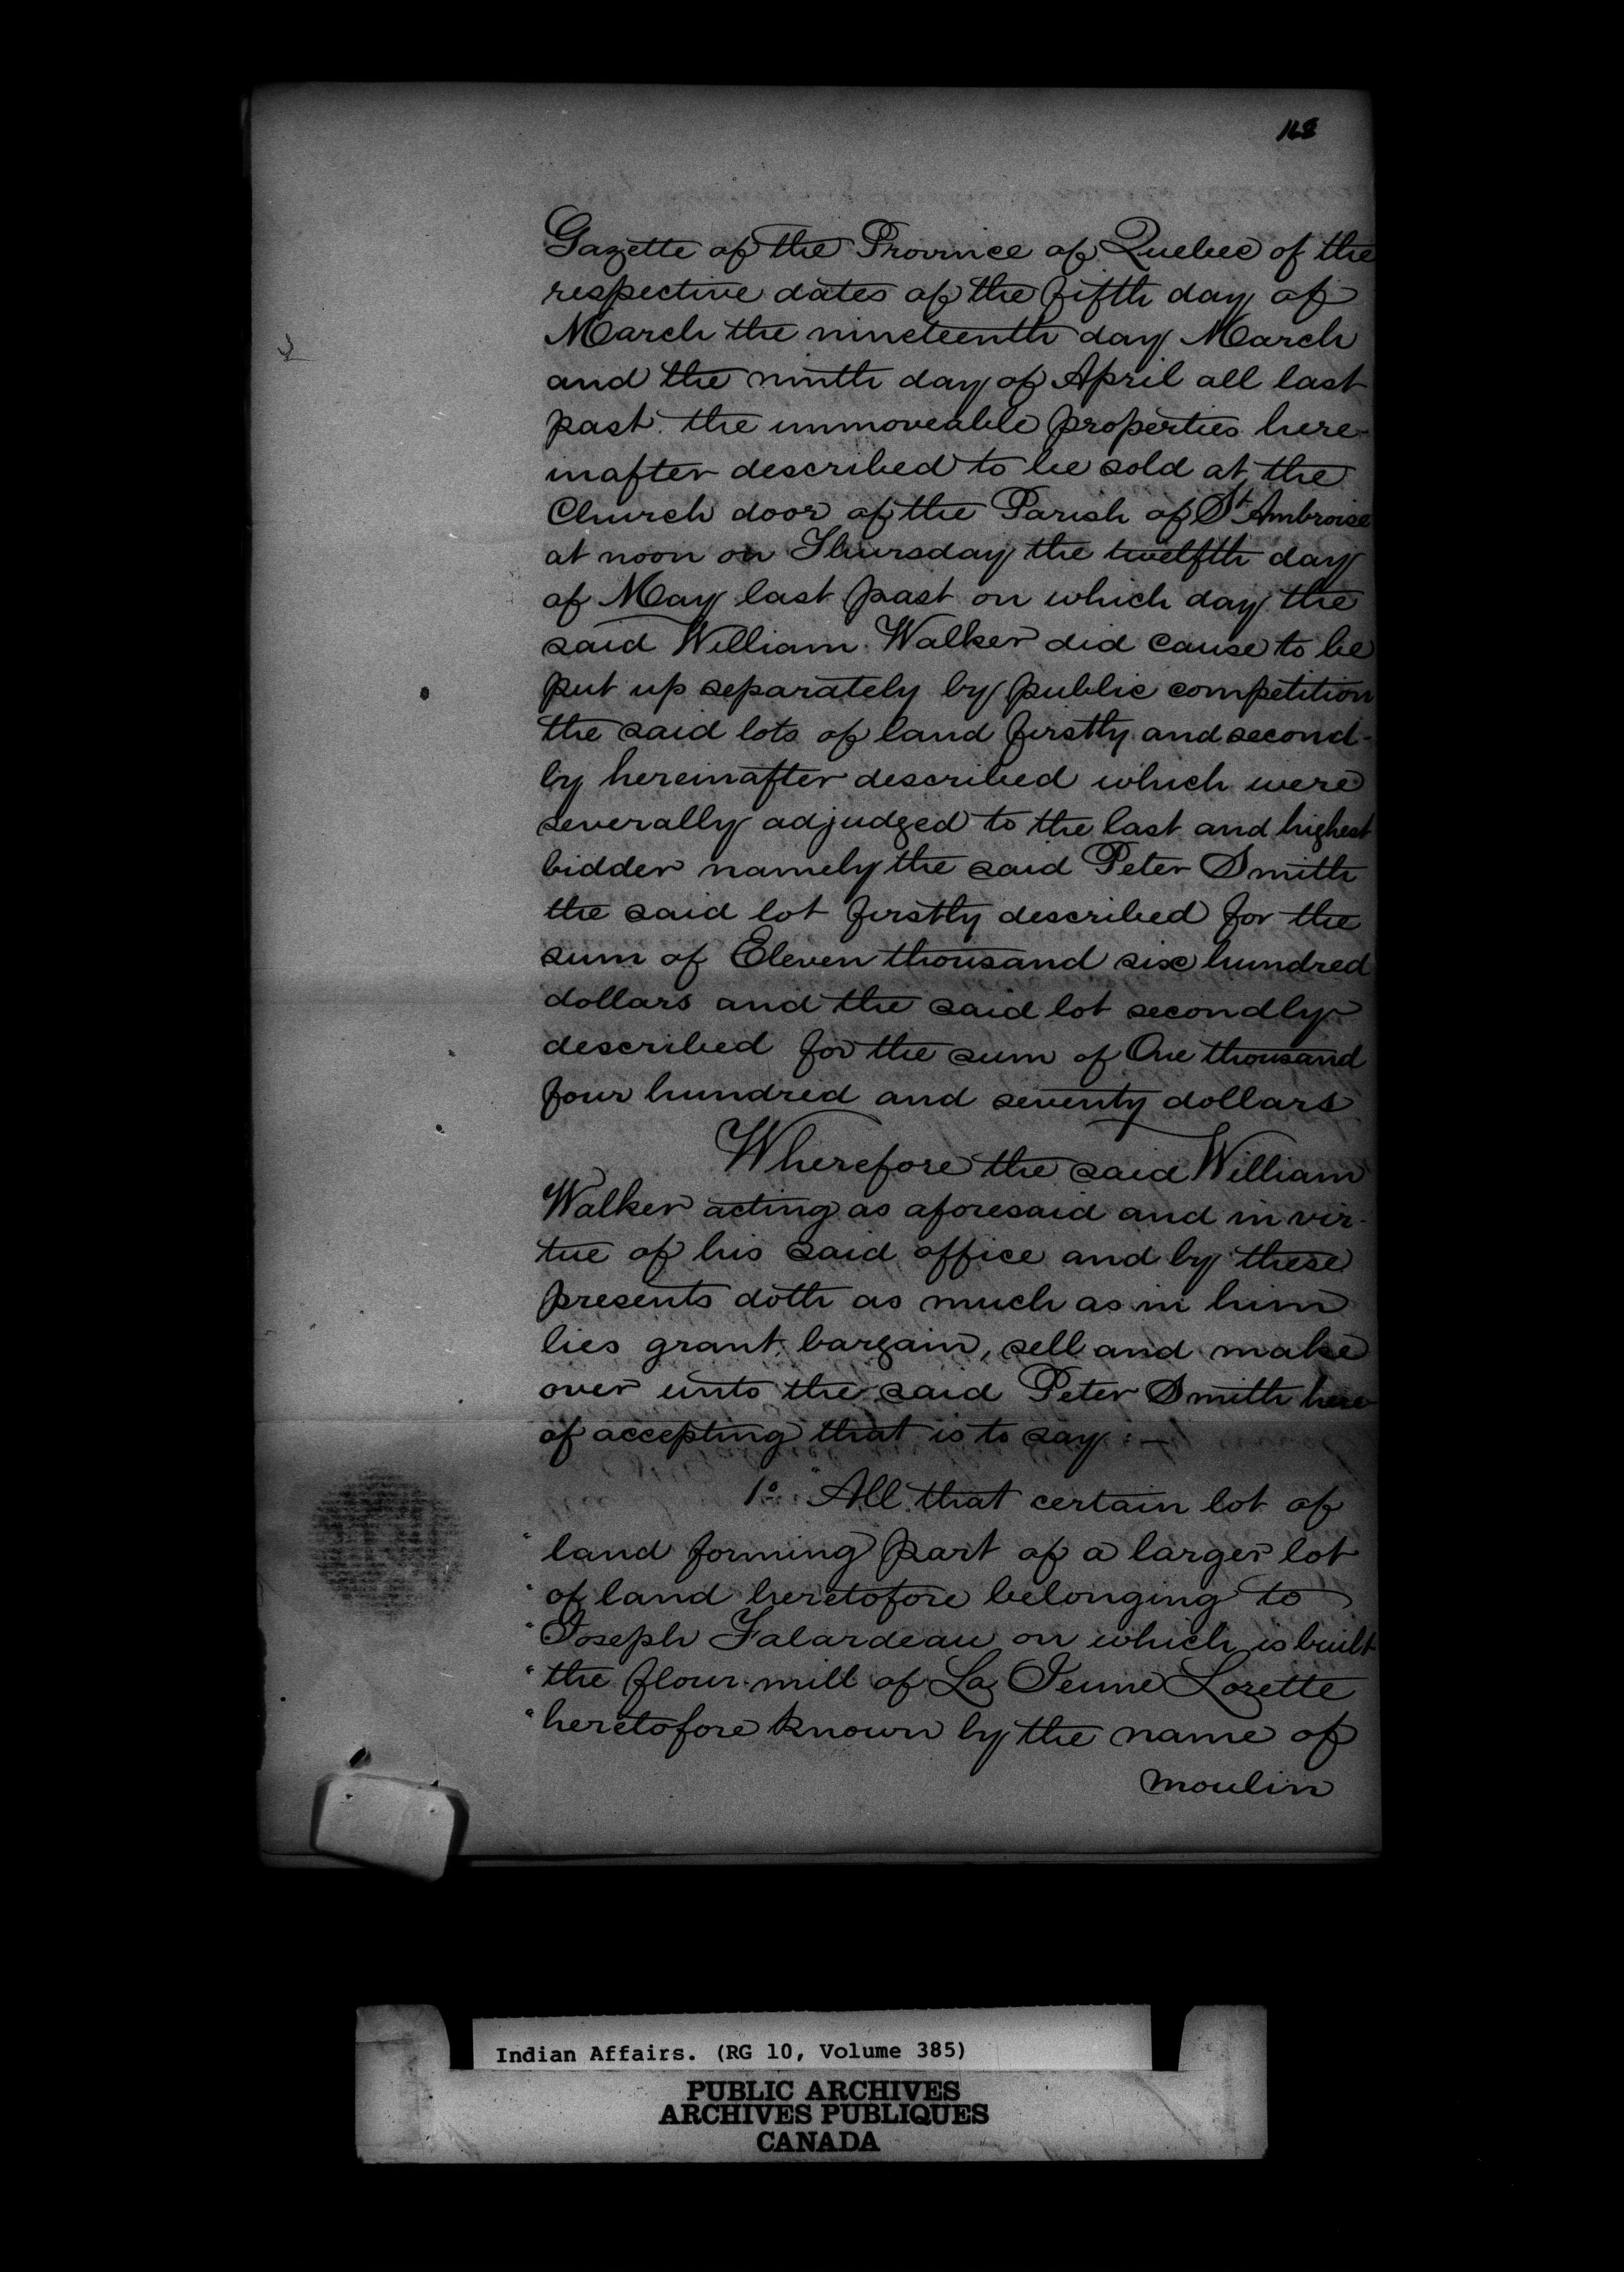 168
Gazette of the Province of Quebec of the
respective dates of the fifth day of
March the nineteenth day March
and the ninth day of April all last
past. the immoveable properties here-
inafter described to be sold at the
Church door of the Parish of St Ambroise
at noon on Thursday the twelfth day
of May last past on which day the
said William Walker did cause to be
put up separately by public competition
the said lots of land firstly and second-
ly hereinafter described which were
severally adjudged to the last and highest
bidder namely the said Peter Smith
the said lot firstly described for the
sum of Eleven thousand six hundred
dollars and the said lot secondly
described for the sum of One thousand
four hundred and seventy dollars
Wherefore the said William
Walker acting as aforesaid and in vir-
tue of his said office and by these
presents doth as much as in him
lies grant, bargain, sell and make
over unto the said Peter Smith here-
of accepting that is to say :—
1o. "All that certain lot of
" land forming part of a larger lot
" of land heretofore belonging to
" Joseph Falardeau on which is built
" the flour mill of La Jeune Lorette
" heretofore known by the name of
moulin
Indian Affairs. (RG 10, Volume 385)
PUBLIC ARCHIVES
ARCHIVES PUBLIQUES
CANADA